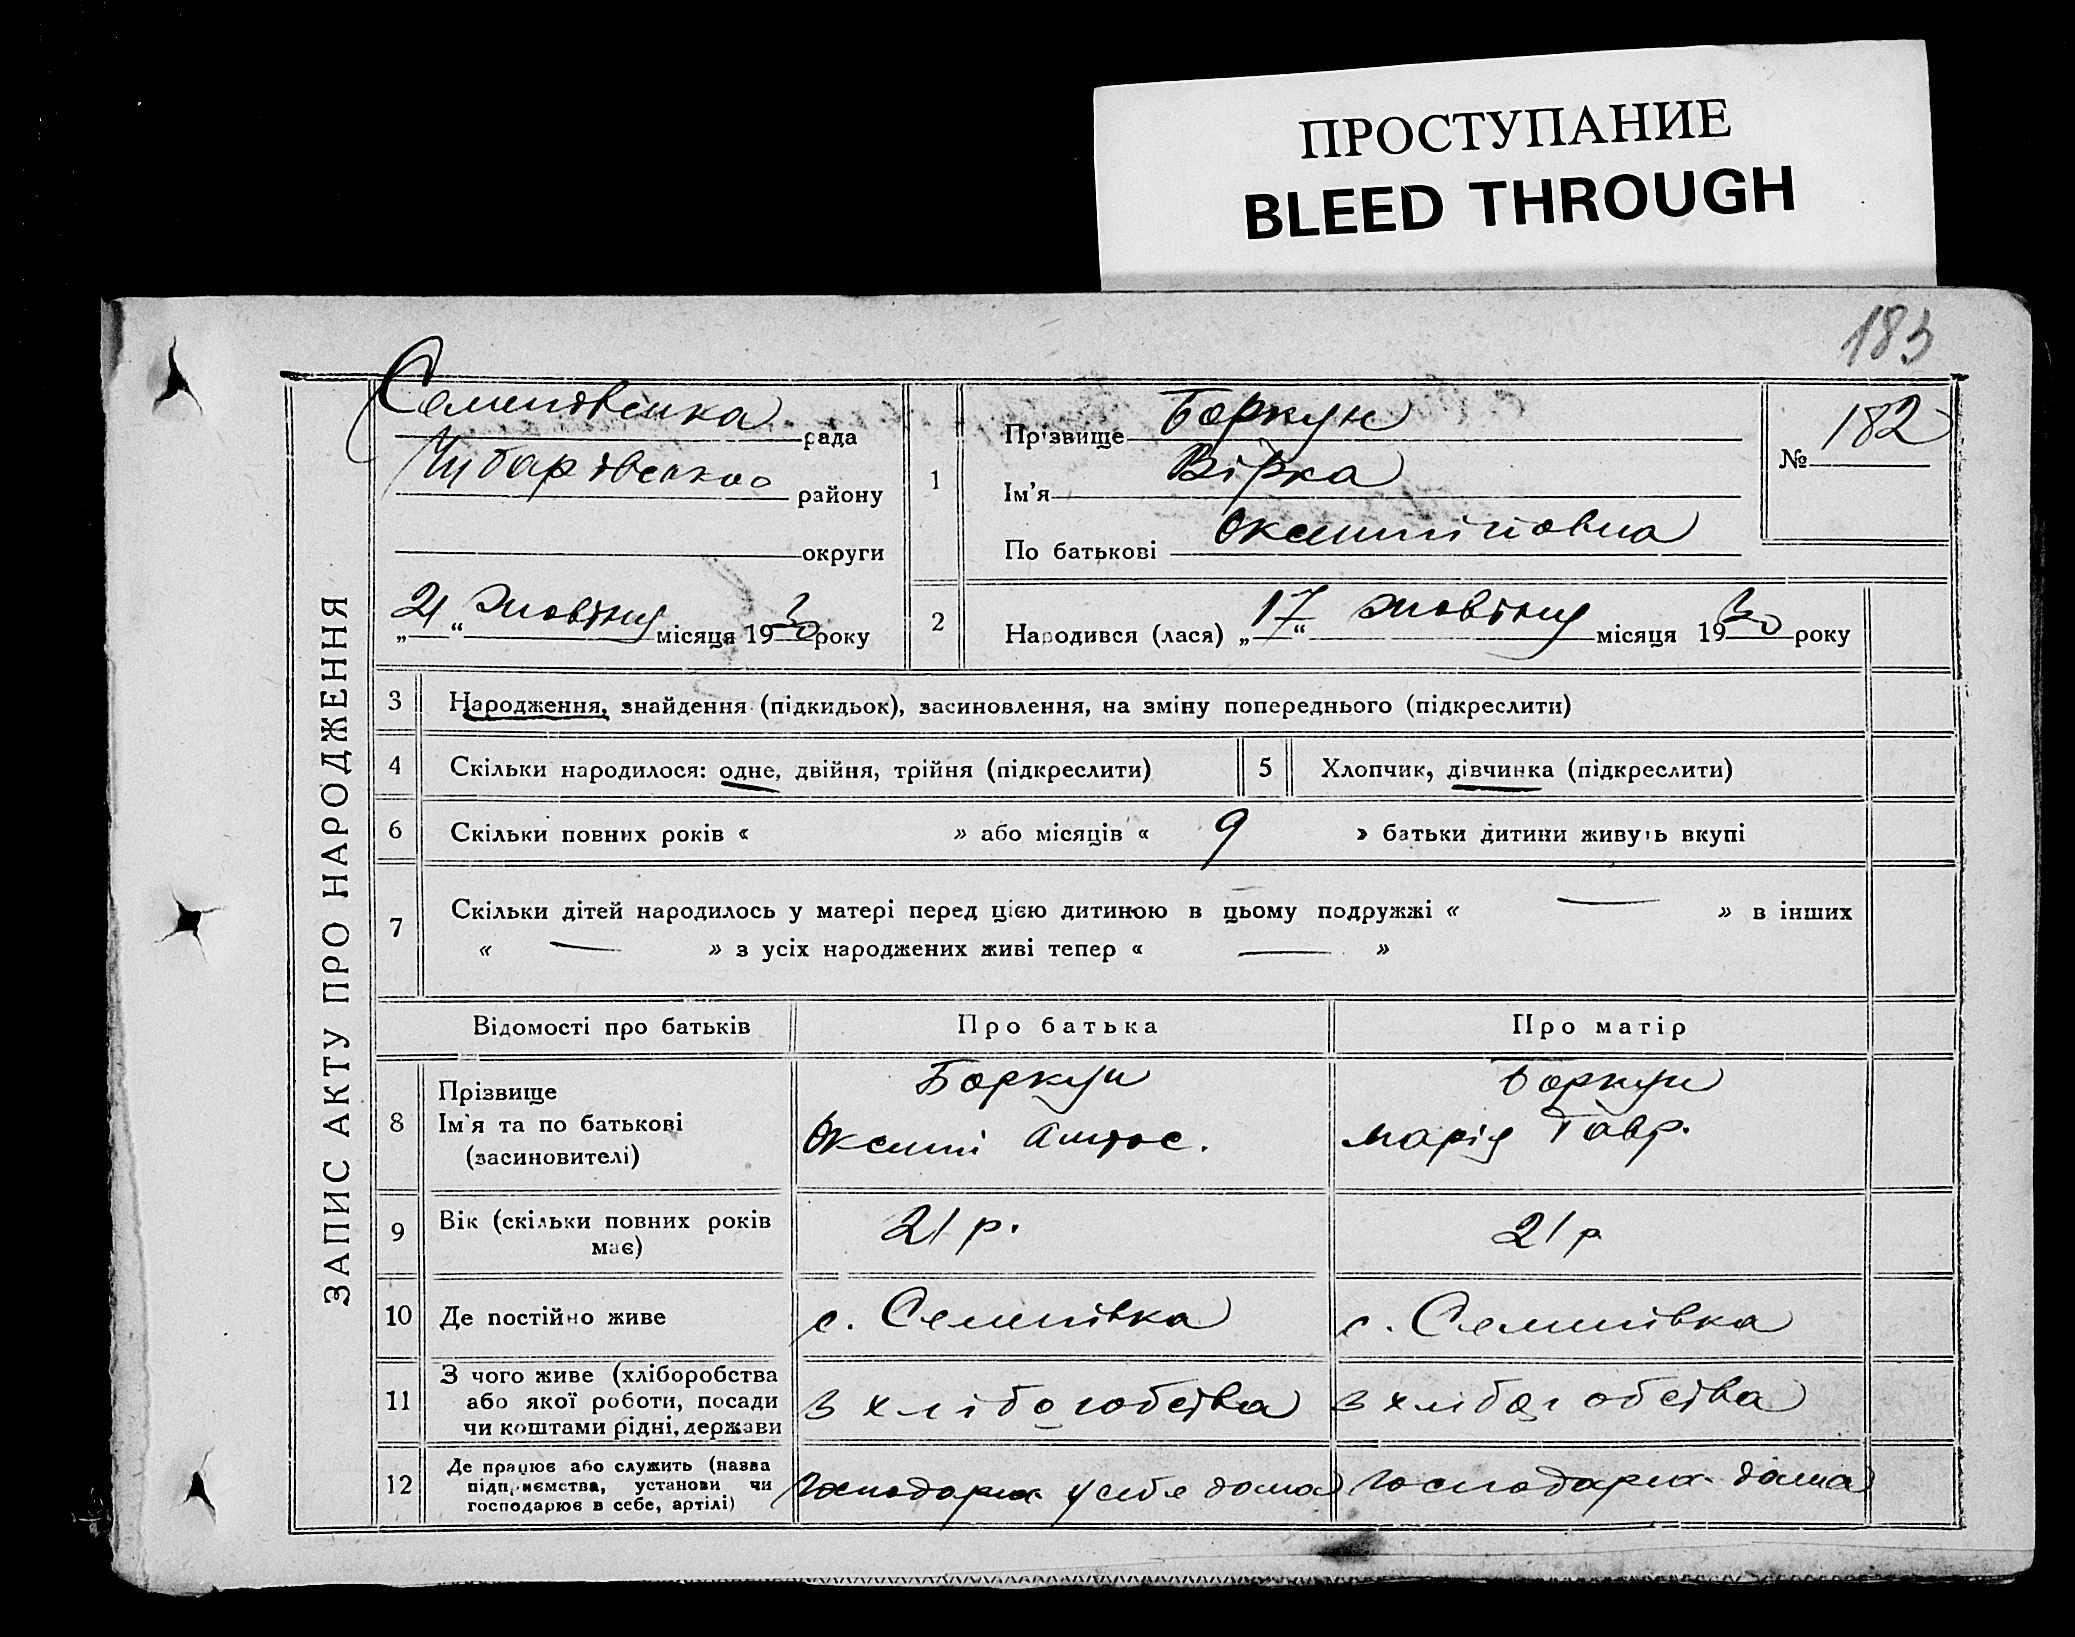 ПРОСТУПАНИЕ
BLEED THROUGH
183
ЗАПИС АКТУ ПРО НАРОДЖЕННЯ
рада
району
округи
„21“ Жовтня місяця 1930 року
1
Прізвище Боркун
Ім'я Вірка
По батькові
№ 182
2
Народився (лася) „17“ жовтня місяця 1930 року
3 Народження, знайдення (підкидьок), засиновлення, на зміну попереднього (підкреслити)
4 Скільки народилося: одне, двійня, трійня (підкреслити)
5 Хлопчик, дівчинка (підкреслити)
6 Скільки повних років « » або місяців « 9 » батьки дитини живуть вкупі
7 Скільки дітей народилось у матері перед цією дитиною в цьому подружжі « — » в інших
« — » з усіх народжених живі тепер « — »
Відомості про батьків Про батька Про матір
8 Прізвище
Ім'я та по батькові
(засиновителі)
Боркун
Боркун
Марія Гавр.
9 Вік (скільки повних років
має)
21 р.
21 р
10 Де постійно живе
с. Семенівка
с. Семенівка
11 З чого живе (хліборобства
або якої роботи, посади
чи коштами рідні, держави
З хліборобства
З хліборобства
12 Де працює або служить (назва
підприємства, установи чи
господарює в себе, артілі)
у себе дома
дома